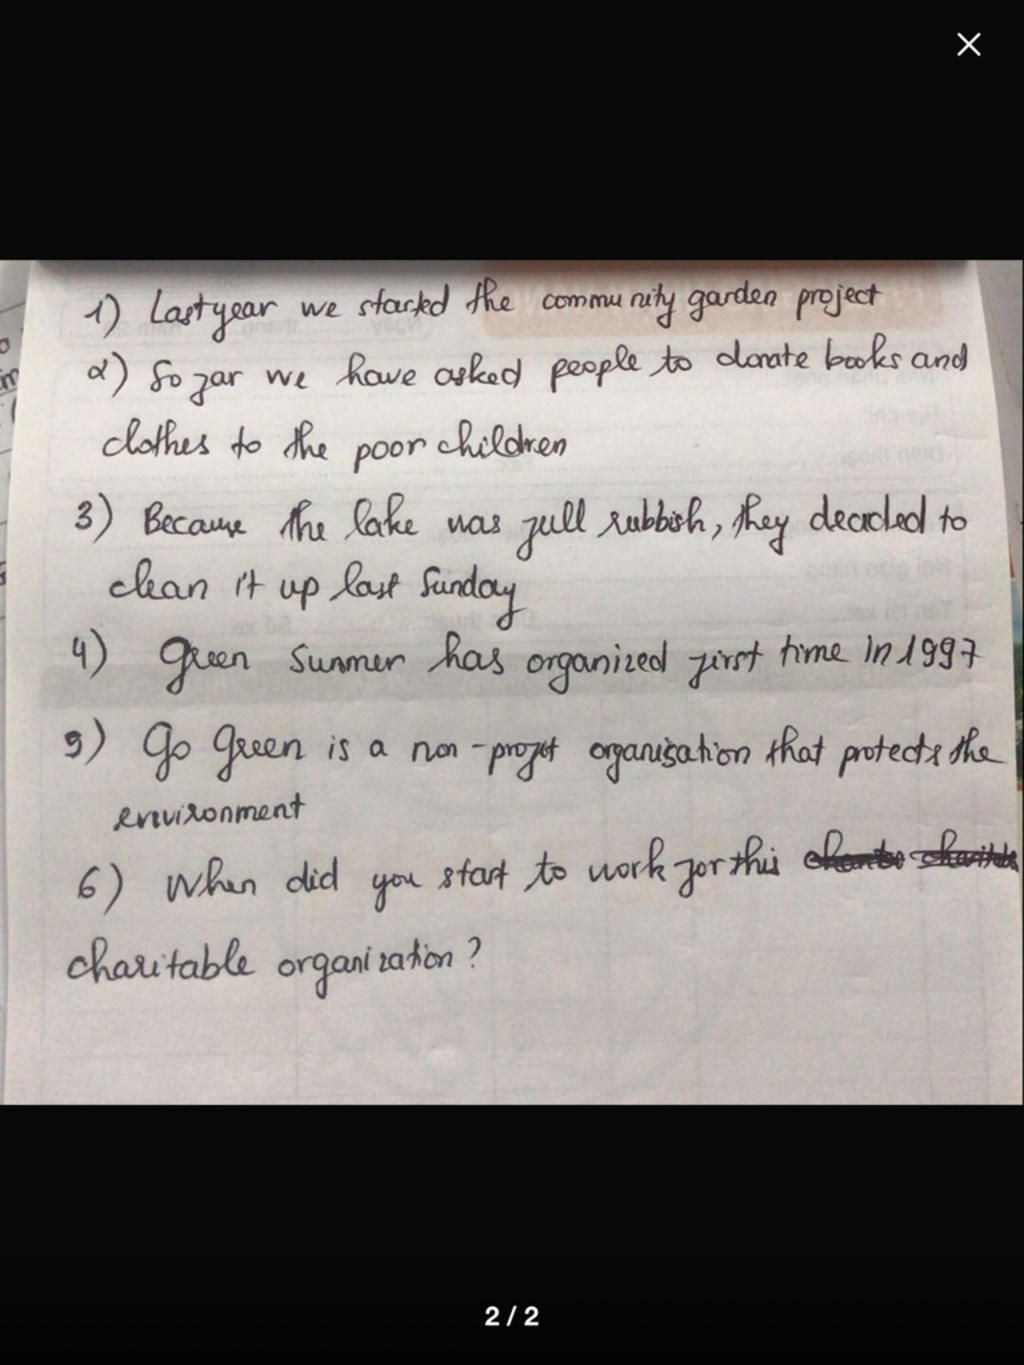 1) Last year we started the community garden project
2) So far we have asked people to donate books and
clothes to the poor children
3) Because the lake was full rubbish, they decided to
clean it up last Sunday
4) Green Summer has organized first time in 1997
5) Go Green is a non-profit organisation that protects the
environment
6) When did you start to work for this
charitable organization?
2 / 2